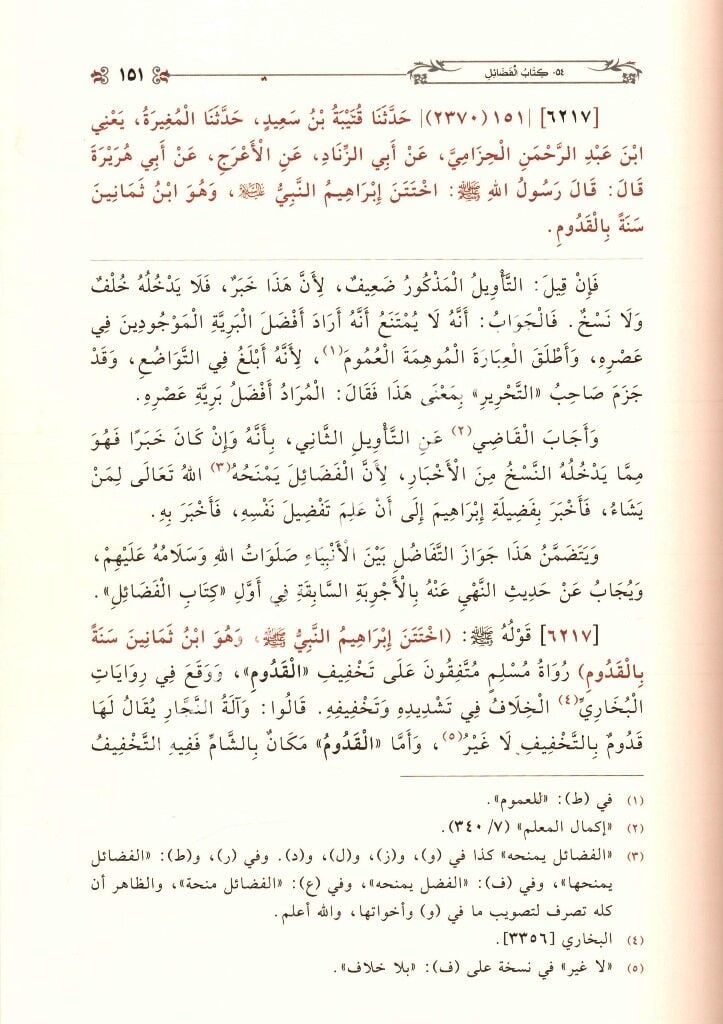 ٥٤- كِتَابُ الْفَضَائِلِ
١٥١
[٦٢١٧] |١٥١ (٢٣٧٠)| حَدَّثَنَا قُتَيْبَةُ بْنُ سَعِيدٍ، حَدَّثَنَا الْمُغِيرَةُ، يَعْنِي
ابْنَ عَبْدِ الرَّحْمَنِ الْحِزَامِيَّ، عَنْ أَبِي الزِّنَادِ، عَنِ الْأَعْرَجِ، عَنْ أَبِي هُرَيْرَةَ
قَالَ: قَالَ رَسُولُ اللهِ ﷺ: اخْتَتَنَ إِبْرَاهِيمُ النَّبِيُّ عليه السلام، وَهُوَ ابْنُ ثَمَانِينَ
سَنَةً بِالْقَدُومِ.
فَإِنْ قِيلَ: التَّأْوِيلُ الْمَذْكُورُ ضَعِيفٌ، لِأَنَّ هَذَا خَبَرٌ، فَلَا يَدْخُلُهُ خُلْفٌ
وَلَا نَسْخٌ. فَالْجَوَابُ: أَنَّهُ لَا يُمْتَنَعُ أَنَّهُ أَرَادَ أَفْضَلَ الْبَرِيَّةِ الْمَوْجُودِينَ فِي
عَصْرِهِ، وَأَطْلَقَ الْعِبَارَةَ الْمُوهِمَةَ الْعُمُومَ(١)، لِأَنَّهُ أَبْلَغُ فِي التَّوَاضُعِ، وَقَدْ
جَزَمَ صَاحِبُ «التَّحْرِيرِ» بِمَعْنَى هَذَا فَقَالَ: الْمُرَادُ أَفْضَلُ بَرِيَّةِ عَصْرِهِ.
وَأَجَابَ الْقَاضِي(٢) عَنِ التَّأْوِيلِ الثَّانِي، بِأَنَّهُ وَإِنْ كَانَ خَبَرًا فَهُوَ
مِمَّا يَدْخُلُهُ النَّسْخُ مِنَ الْأَخْبَارِ، لِأَنَّ الْفَضَائِلَ يَمْنَحُهُ(٣) اللهُ تَعَالَى لِمَنْ
يَشَاءُ، فَأَخْبَرَ بِفَضِيلَةِ إِبْرَاهِيمَ إِلَى أَنْ عَلِمَ تَفْضِيلَ نَفْسِهِ، فَأَخْبَرَ بِهِ.
وَيَتَضَمَّنُ هَذَا جَوَازَ التَّفَاضُلِ بَيْنَ الْأَنْبِيَاءِ صَلَوَاتُ اللهِ وَسَلَامُهُ عَلَيْهِمْ،
وَيُجَابُ عَنْ حَدِيثِ النَّهْيِ عَنْهُ بِالْأَجْوِبَةِ السَّابِقَةِ فِي أَوَّلِ «كِتَابِ الْفَضَائِلِ».
[٦٢١٧] قَوْلُهُ ﷺ: (اخْتَتَنَ إِبْرَاهِيمُ النَّبِيُّ ﷺ، وَهُوَ ابْنُ ثَمَانِينَ سَنَةً
بِالْقَدُومِ) رُوَاةُ مُسْلِمٍ مُتَّفِقُونَ عَلَى تَخْفِيفِ «الْقَدُومِ»، وَوَقَعَ فِي رِوَايَاتِ
الْبُخَارِيِّ(٤) الْخِلَافُ فِي تَشْدِيدِهِ وَتَخْفِيفِهِ. قَالُوا: وَآلَةُ النَّجَّارِ يُقَالُ لَهَا
قَدُومٌ بِالتَّخْفِيفِ لَا غَيْرُ(٥)، وَأَمَّا «الْقَدُومُ» مَكَانٌ بِالشَّامِّ فَفِيهِ التَّخْفِيفُ
(١) في (ط): «للعموم».
(٢) «إكمال المعلم» (٧/ ٣٤٠).
(٣) «الفضائل يمنحه» كذا في (و)، و(ز)، و(ل)، و(د). وفي (ر)، و(ط): «الفضائل
يمنحها»، وفي (ف): «الفضل يمنحه»، وفي (ع): «الفضائل منحة»، والظاهر أن
كله تصرف لتصويب ما في (و) وأخواتها، والله أعلم.
(٤) البخاري [٣٣٥٦].
(٥) «لا غير» في نسخة على (ف): «بلا خلاف».